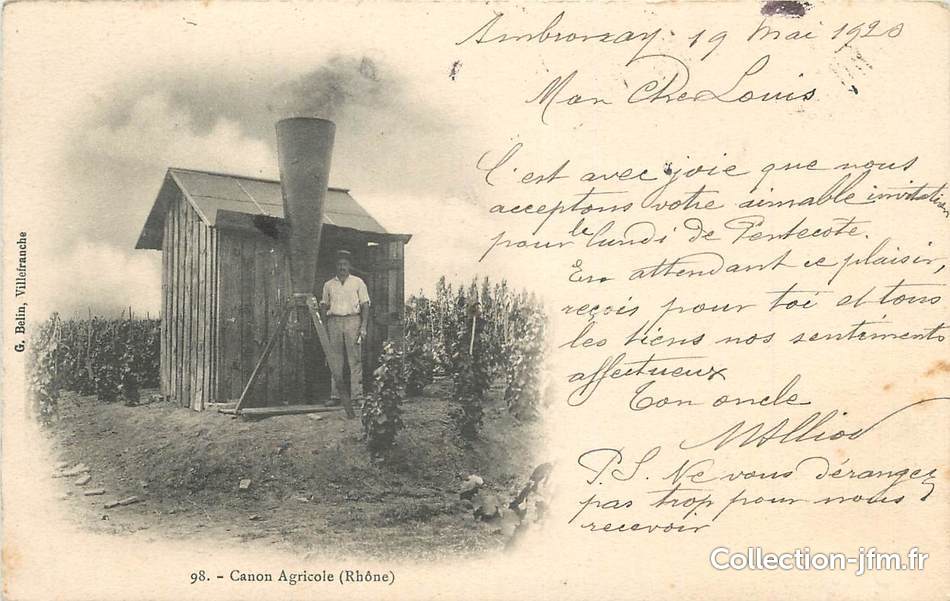 19 Mai 1920
Mon Cher Louis
C'est avec joie que nous
acceptons votre aimable invitation
pour le lundi de Pentecote.
En attendant ce plaisir,
reçois pour toi et tous
les tiens nos sentiments
affectueux
Ton oncle
P.S. Ne vous dérangez
pas trop pour nous
recevoir
G. Belin, Villefranche
98. - Canon Agricole (Rhône)
Collection-jfm.fr